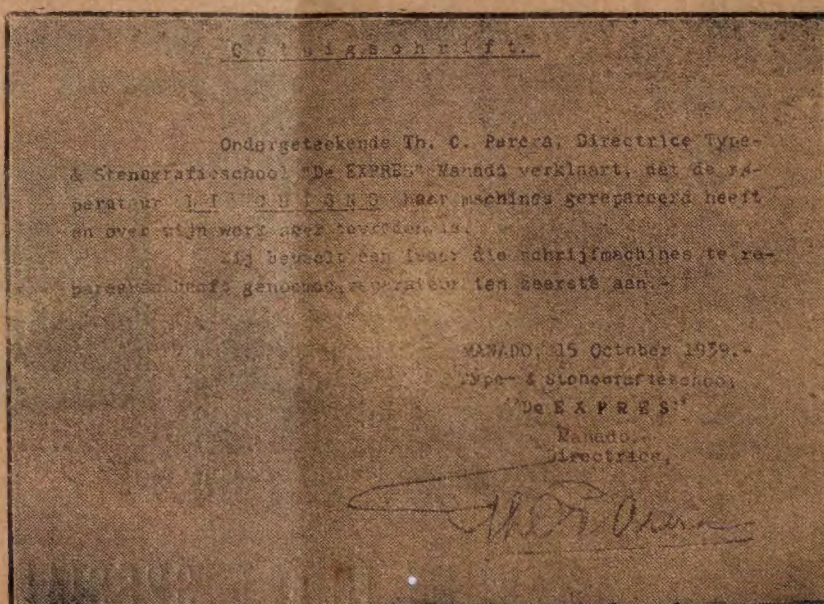 Getuigschrift.
Ondergeteekende Th. C. Parera, Directrice Type-
& Stenografieschool "De EXPRES" Manado verklaart, dat de re-
perateur haar machines gerepareerd heeft
en over zijn werk zeer tevreden is.
Zij beveelt een ieder die schrijfmachines te re-
pareeren heeft genoemde reperateur ten zeerste aan.-
MANADO, 15 October 1939.-
Type- & Stenografieschool
"De EXPRES"
Manado.-
Directrice,